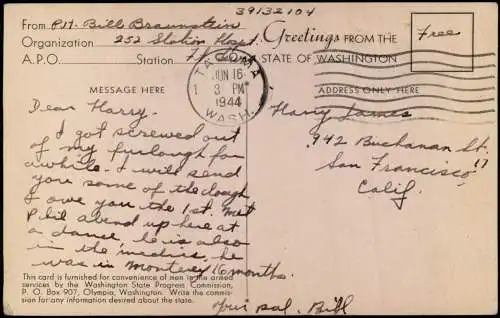 39132104
From Pvt. Bill Braunstein
Organization 252 Station Hospt.
A.P.O. Station Ft.
Greetings FROM THE
STATE OF WASHINGTON
Free
TACOMA
JUN 16
1 3 PM
1944
WASH.
MESSAGE HERE
ADDRESS ONLY HERE
Dear Harry.
I got screwed out
of my furlough for
awhile. I will send
you some of the dough
I owe you the 1st. Met
Phil abend up here at
a dance, he is also
in the medics, he
was in Monterey 16 months.
Your pal. Bill
Harry James
942 Buchanan St.
San Francisco, 17
Calif.
This card is furnished for convenience of men in the armed
services by the Washington State Progress Commission,
P. O. Box 907, Olympia, Washington. Write the commis-
sion for any information desired about the state.